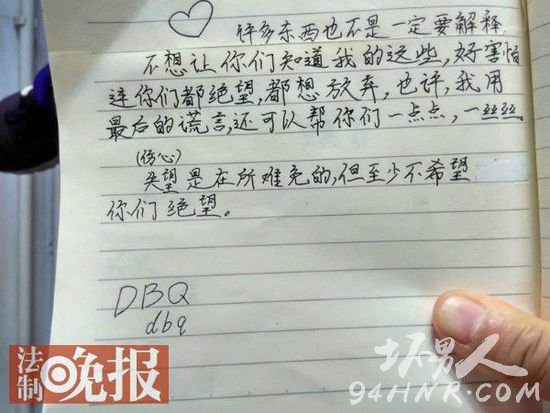 许多东西也不是一定要解释
不想让你们知道我的这些,好害怕
连你们都绝望,都想放弃,也许,我用
最后的谎言,还可以帮你们一点点,一丝丝
(伤心)
失望是在所难免的,但至少不希望
你们绝望。
DBQ
dbq
法制晚报
坏男人
94HNR.COM